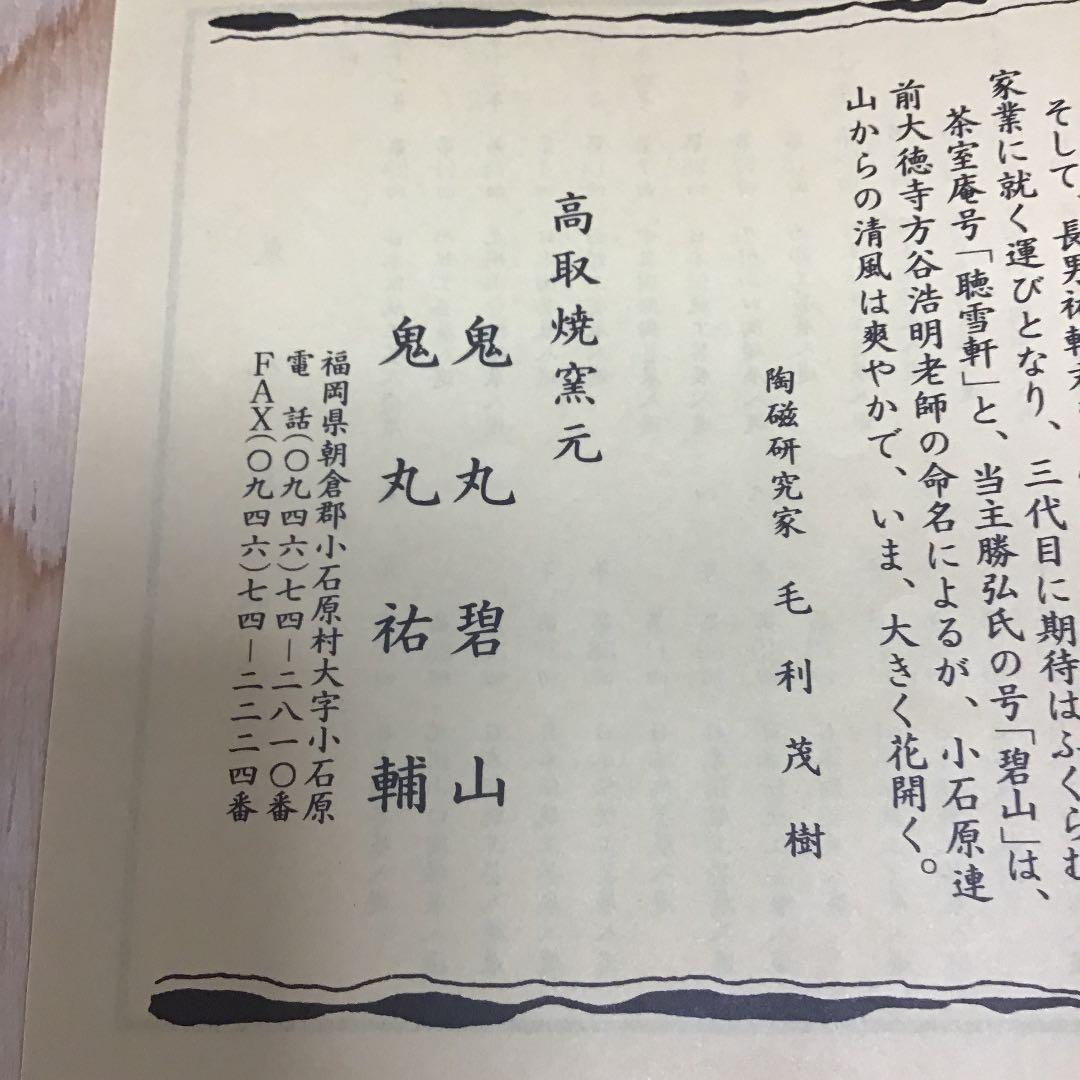 そして、長男祐輔君
家業に就く運びとなり、三代目に期待はふくらむ
茶室庵号「聴雪軒」と、当主勝弘氏の号「碧山」は、
前大徳寺方谷浩明老師の命名によるが、小石原連
山からの清風は爽やかで、いま、大きく花開く。
陶磁研究家 毛利茂樹
高取焼窯元
鬼丸碧山
鬼丸祐輔
福岡県朝倉郡小石原村大字小石原
電話(〇九四六)七四―二八一〇番
FAX(〇九四六)七四―二二二四番